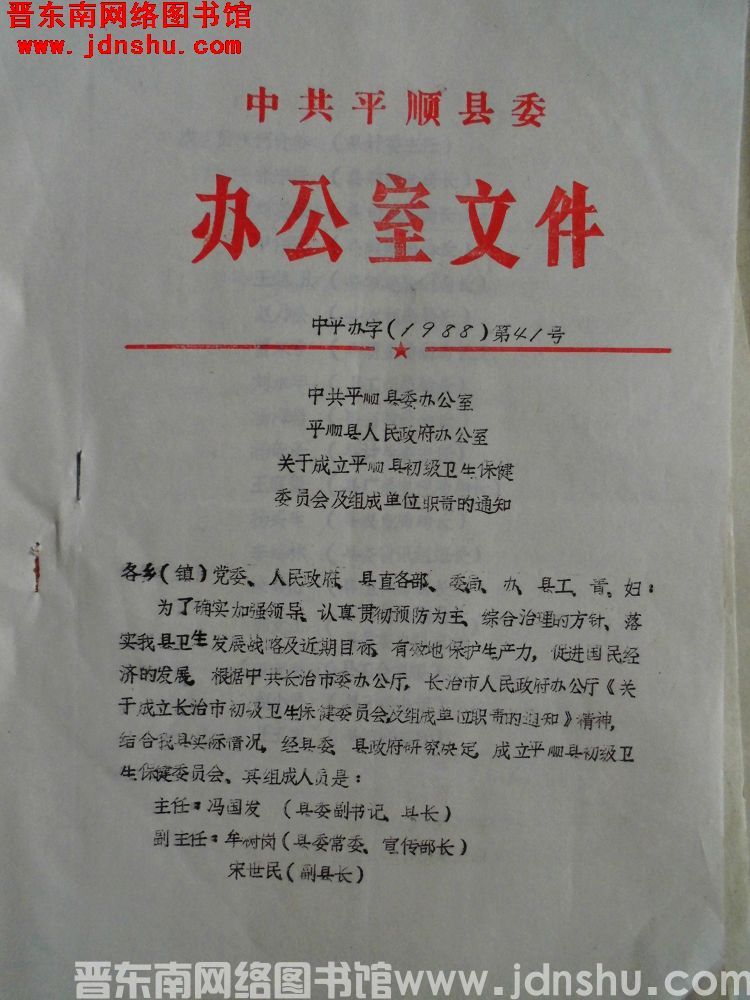 晋东南网络图书馆
www.jdnshu.com
中共平顺县委
办公室文件
中平办字(1988)第41号
中共平顺县委办公室
平顺县人民政府办公室
关于成立平顺县初级卫生保健
委员会及组成单位职责的通知
各乡(镇)党委、人民政府、县直各部、委、局、办、县工、青、妇:
为了确实加强领导、认真贯彻预防为主、综合治理的方针、落
实我县卫生发展战略及近期目标,有效地保护生产力,促进国民经
济的发展,根据中共长治市委办公厅,长治市人民政府办公厅《关
于成立长治市初级卫生保健委员会及组成单位职责的通知》精神,
结合我县实际情况,经县委、县政府研究决定,成立平顺县初级卫
生保健委员会、其组成人员是:
主任:冯国发 (县委副书记、县长)
副主任:牟树岗(县委常委、宣传部长)
宋世民(副县长)
晋东南网络图书馆www.jdnshu.com